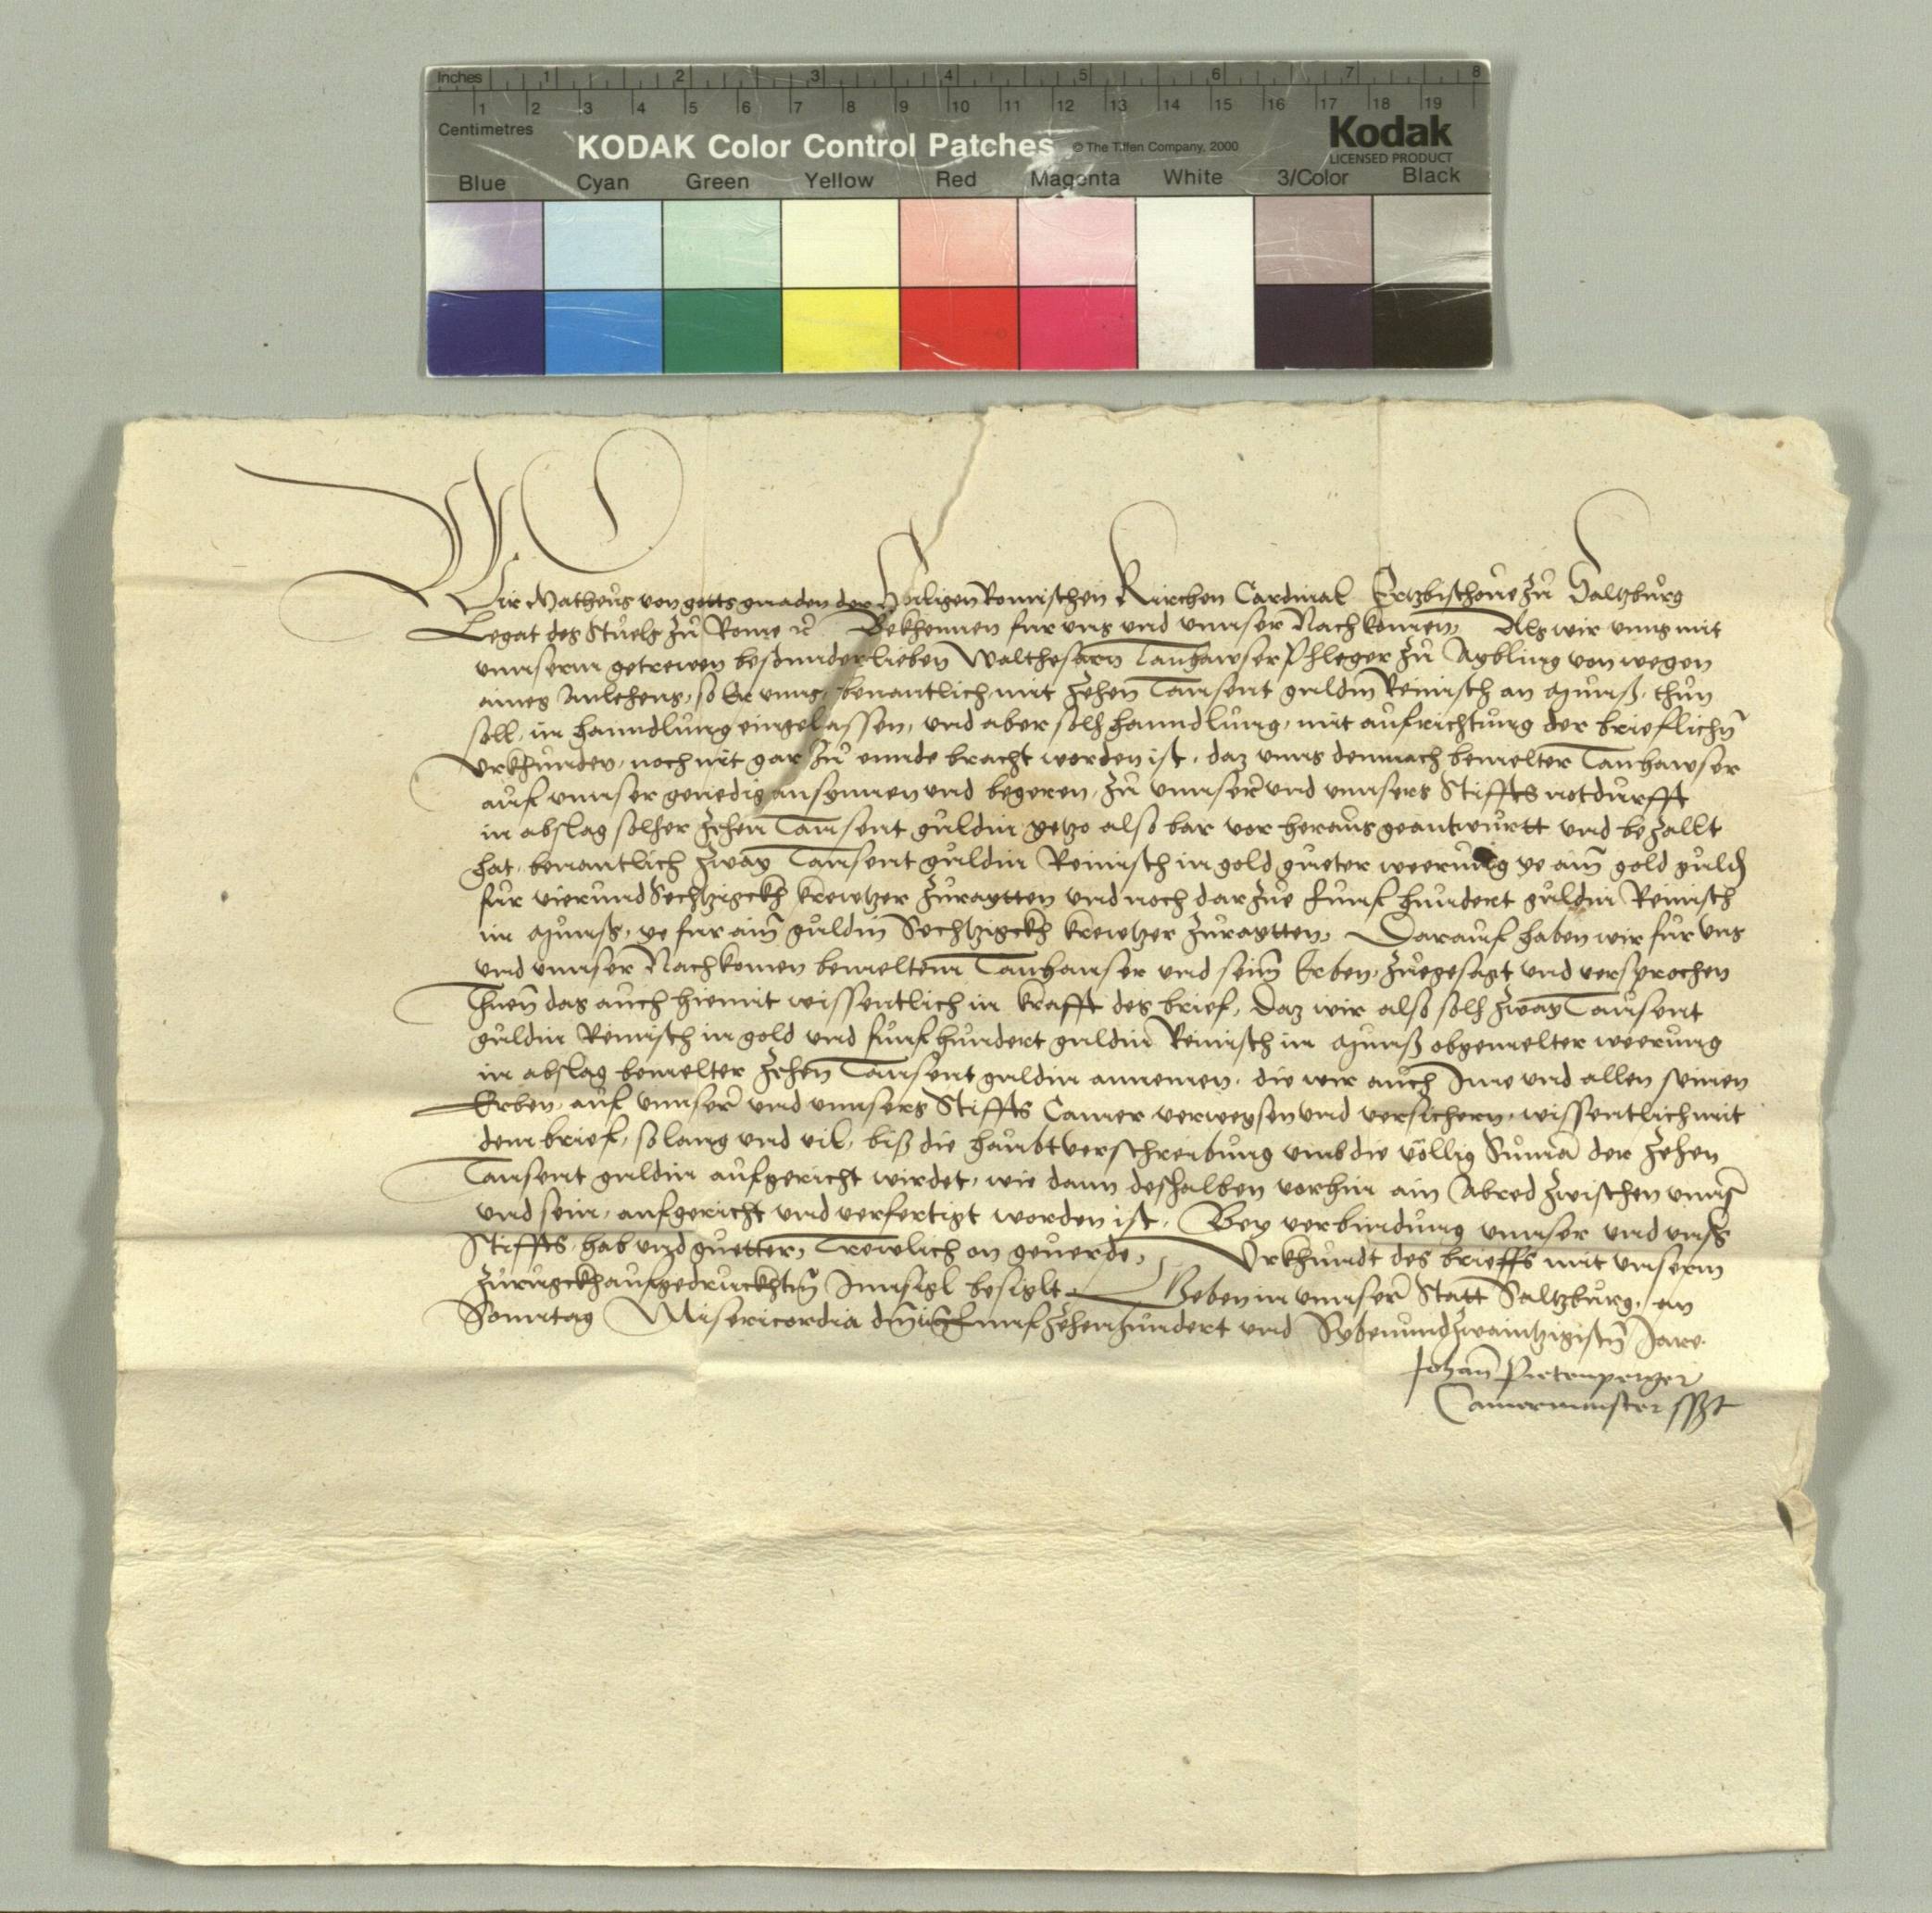 Inches 1 2 3 4 5 6 7 8
1 2 3 4 5 6 7 8 9 10 11 12 13 14 15 16 17 18 19
Centimetres
KODAK Color Control Patches © The Tiffen Company, 2000 Kodak
LICENSED PRODUCT
Blue Cyan Green Yellow Red Magenta White 3/Color Black
Wir Matheus von gotts gnaden der Heiligen Romischen Kirchen Cardinal Ertzbischoue zů Saltzburg
Legat des Stuels zů Rome ꝛc Bekhennen fur uns und unnser Nachkomen, Als wir unns mit
unnserm getrewen besonnder lieben Walthesarn Tanhawser Pfleger zů Aybling von wegen
aines Anlehens, so Er unns, benantlich mit zehen Tausent guldin Reinisch an Munß, thun
soll, in hanndlung eingelassen, und aber solh hanndlung, mit aufrichtung der brieflichn̄
Urkhunden, noch nit gar zů ennde bracht worden ist, daz unns demnach bemelter Tanhawser
auf unnser genedig ansynnen und begeren, zů unnser und unnsers Stiffts notdurfft
in abslag solher zehen Tausent guldin yetzo also bar vor heraus geantwurtt und bezallt
hat, benantlich zway Tausent guldin Reinisch in gold gueter weerung ye ain̄ gold guld
für vierundsechtzigckh krewtzer zuraytten und noch darzue funfhundert guldin Reinisch
in Munß, ye fur ain̄ guldin Sechtzigckh krewtzer zuraytten, Darauf haben wir für uns
und unnser Nachkomen bemeltem Tanhauser und sein̄ Erben, zuegesagt und versprochen
Thuen̄ das auch hiemit wissentlich in krafft des brief, Daz wir also solh zway Tausent
guldin Reinisch in gold und funfhundert guldin Reinisch in Munß obgemelter weerung
in abslag bemelter zehen Tausent guldin annemen, die wir auch Ime und allen seinen
Erben, auf unnser und unnsers Stiffts Camer verweysen und versichern, wissentlich mit
dem brief, solang und vil, biß die haubtverschreibung umb die völlig Suma der zehen
Tausent guldin aufgericht wirdet, wie dann deshalben vorhin ain Abred zwischen unns
und sein, aufgericht und verfertigt worden ist, Bey verbindung unnser und unß
Stiffts, hab unnd guetter, Trewlich on geuerde, Urkhundt des brieffs mit unserm
zurugckhaufgedruckhtm̄ Innsigl besiglt Geben in unnser Statt Saltzburg, an
Sonntag Misericordia dn̄i im̄ funfzehenhundert und Sybenundzwaintzigistn̄ Jare.
Johan̄ Pretenperger
Camermaister sszt